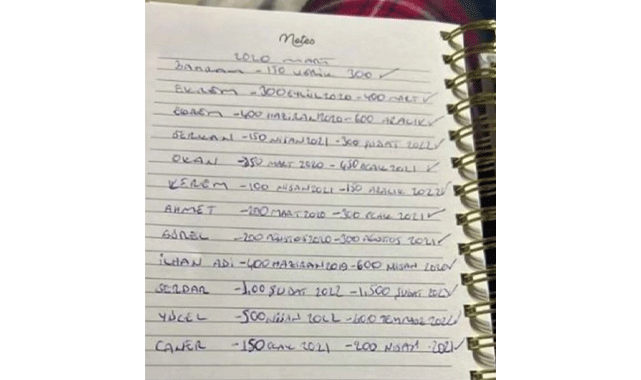 Notes
2020 MART
-150 300 ✓
EKREM -300 EYLÜL 2020 -400 MART ✓
-400 HAZİRAN 2020 -600 ARALIK ✓
SERKAN -150 NİSAN 2021 -300 ŞUBAT 2022 ✓
OKAN -350 MART 2020 -450 OCAK 2021 ✓
KEREM -100 NİSAN 2021 -150 ARALIK 2022 ✓
AHMET -200 MART 2020 -300 OCAK 2021 ✓
-200 AĞUSTOS 2020 -300 AĞUSTOS 2021 ✓
İLHAN ADİ -400 HAZİRAN 2019 -600 NİSAN 2020 ✓
SERDAR ŞUBAT 2022 -1,500 ŞUBAT 2023 ✓
YÜCEL -500 NİSAN 2022 -600 TEMMUZ 2022 ✓
CANER -150 OCAK 2021 -200 NİSAN 2021 ✓